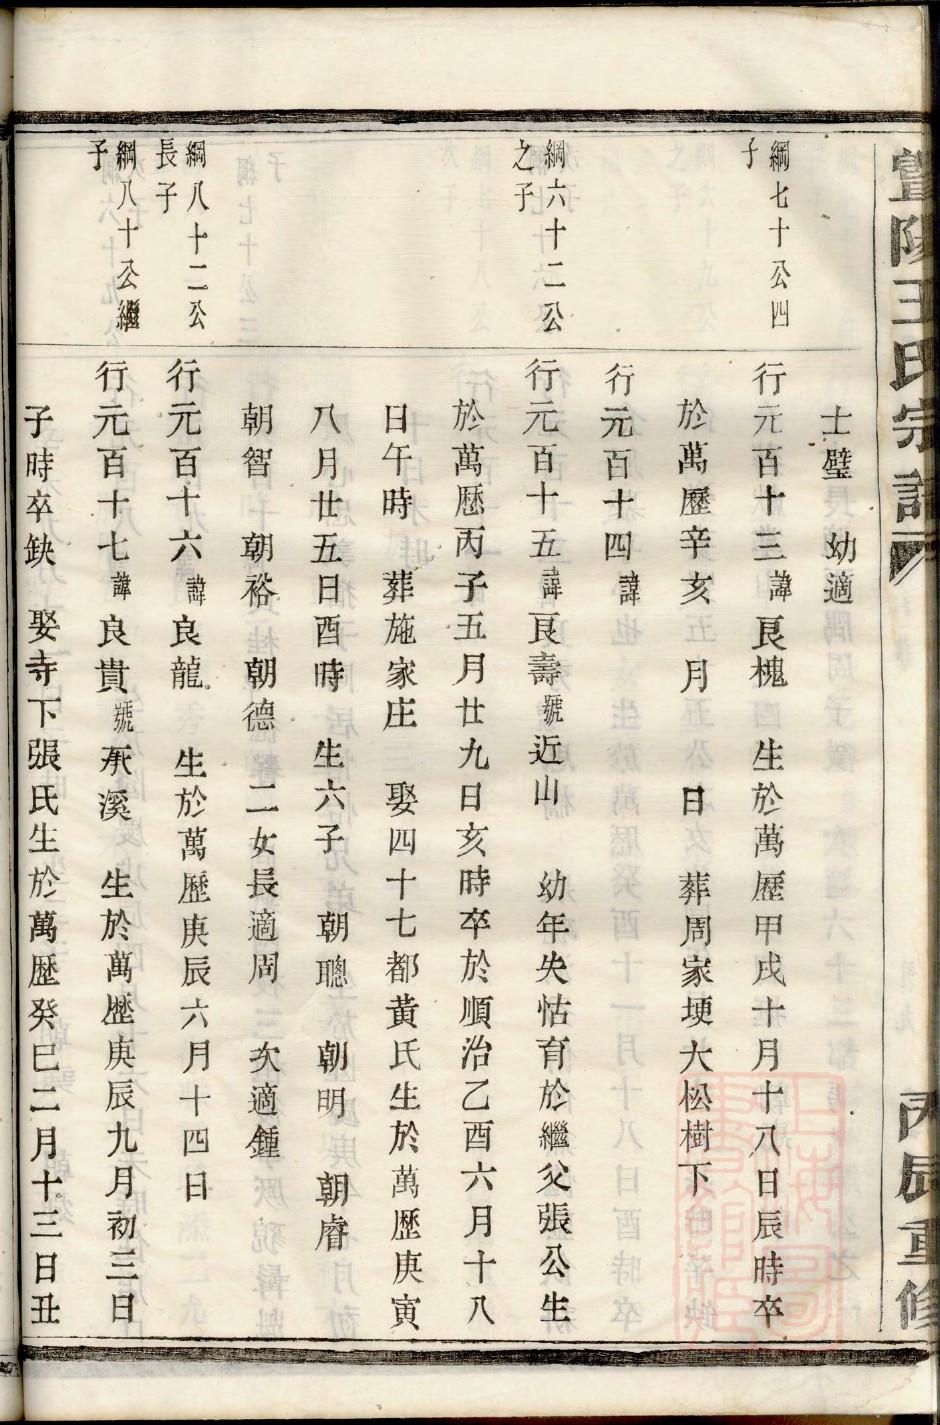 暨陽王氏宗譜
丙辰重修
士璧 幼適
綱七十公四
子
行元百十三諱良槐 生於萬歷甲戌十月十八日辰時卒
於萬歷辛亥 月 日 葬周家埂大松樹下
行元百十四諱
綱六十二公
之子
行元百十五諱良壽號近山 幼年失怙育於繼父張公生
於萬歷丙子五月廿九日亥時卒於順治乙酉六月十八
日午時 葬施家庄 娶四十七都黃氏生於萬歷庚寅
八月廿五日酉時 生六子 朝聰 朝明 朝睿
朝智 朝裕 朝德 二女長適周 次適鍾
綱八十二公
長子
行元百十六諱良龍 生於萬歷庚辰六月十四日
綱八十公繼
子
行元百十七諱良貴號承溪 生於萬歷庚辰九月初三日
子時卒缺 娶寺下張氏生於萬歷癸巳二月十三日丑